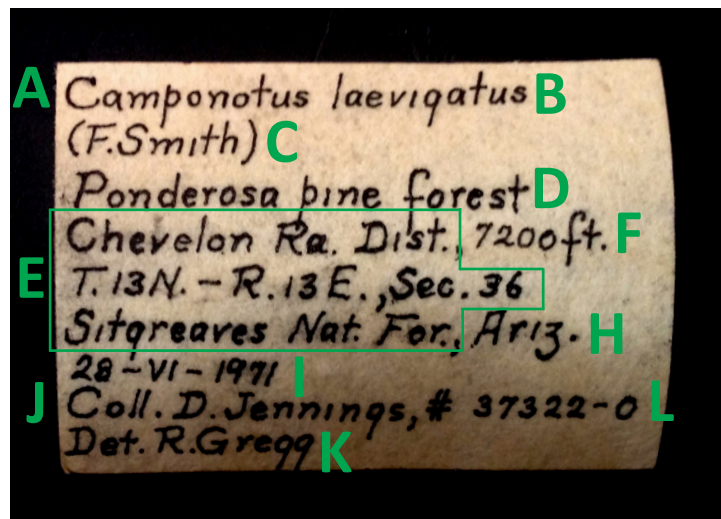 A Camponotus laevigatus B
(F.Smith) C
Ponderosa pine forest D
Chevelon Ra. Dist., 7200ft. F
E T.13N. - R.13E., Sec. 36
Sitgreaves Nat. For., Ariz. H
28-VI-1971 I
J Coll. D. Jennings, # 37322-O L
Det. R.Gregg K